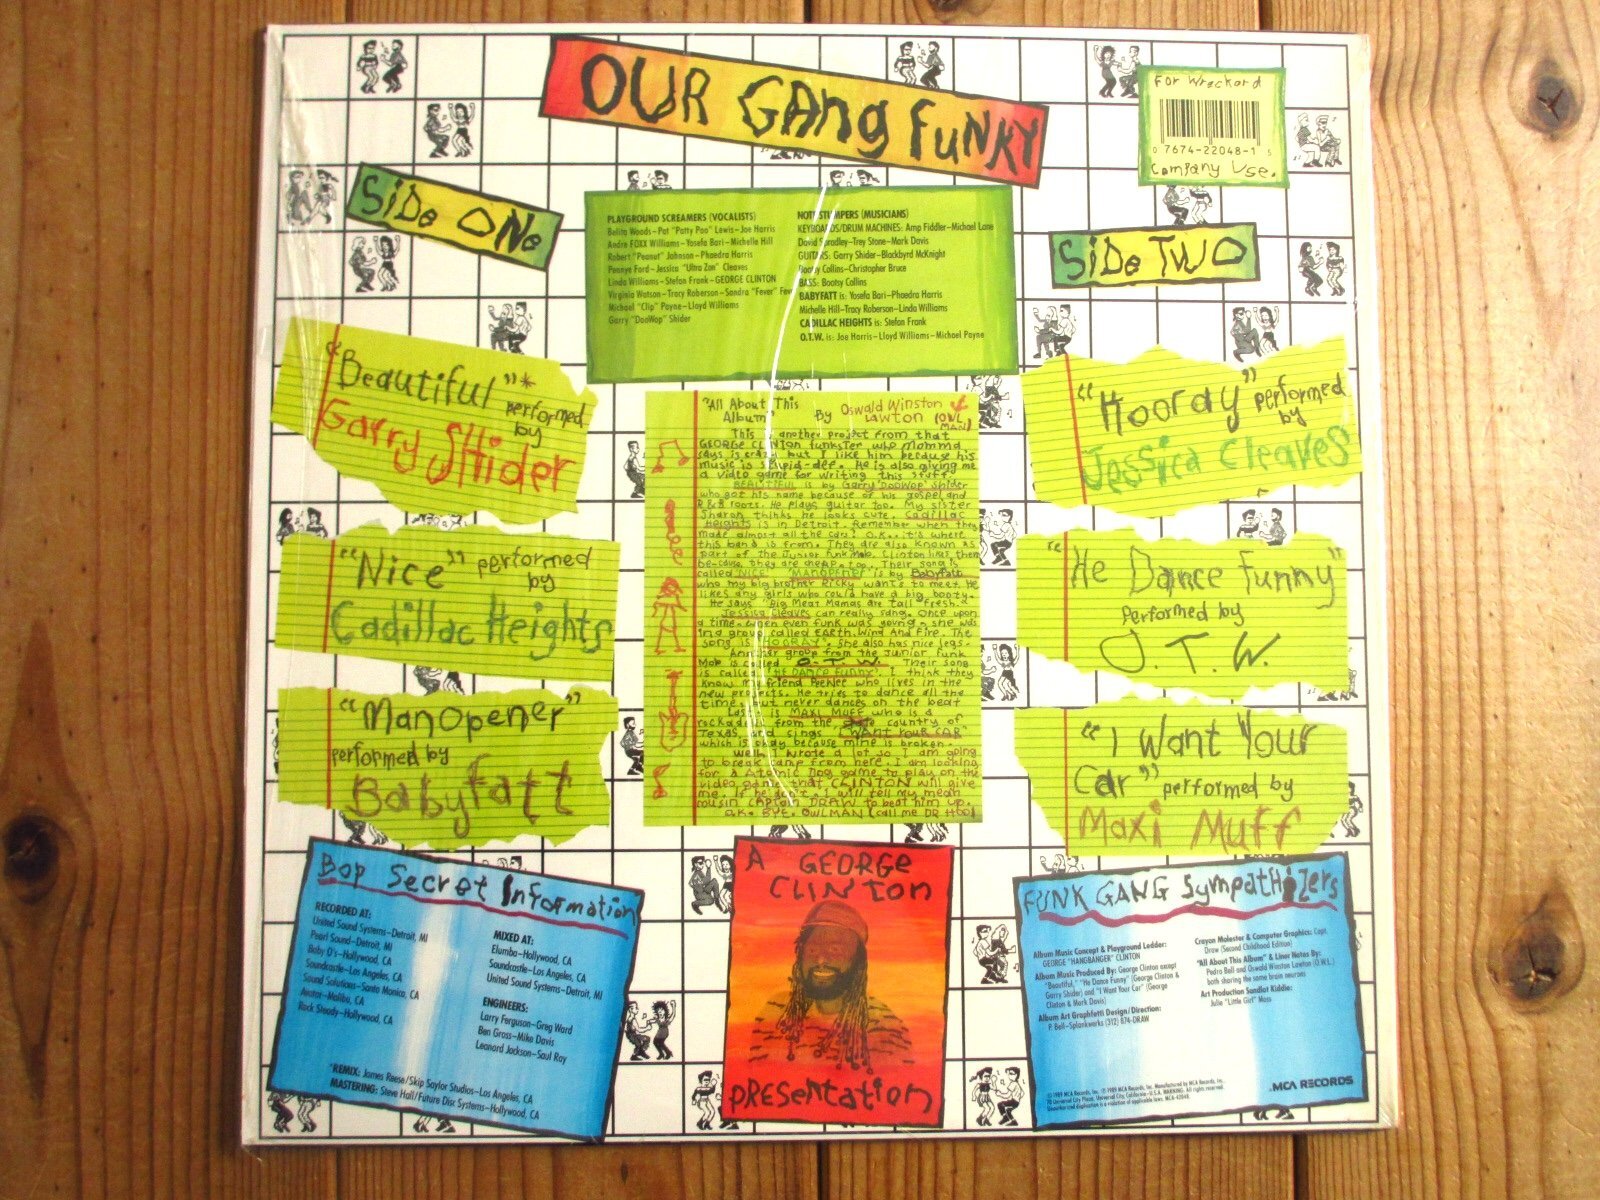 OUR GAng FuNKY
For Wreckord
0 7674-22048-1 5
Company Use.
SiDe ONe
PLAYGROUND SCREAMERS (VOCALISTS)
Belita Woods–Pat "Patty Poo" Lewis–Joe Harris
Andre FOXX Williams–Yosefa Bari–Michelle Hill
Robert "Peanut" Johnson–Phaedra Harris
Pennye Ford–Jessica "Ultra Zon" Cleaves
Linda Williams–Stefan Frank–GEORGE CLINTON
Virginia Watson–Tracy Roberson–Sandra "Fever"
Michael "Clip" Payne–Lloyd Williams
Garry "DooWop" Shider
NOTE STUMPERS (MUSICIANS)
KEYBOARDS/DRUM MACHINES: Amp Fiddler–Michael Lane
David Spradley–Trey Stone–Mark Davis
GUITARS: Garry Shider–Blackbyrd McKnight
Bootsy Collins–Christopher Bruce
BASS: Bootsy Collins
BABYFATT is: Yosefa Bari–Phaedra Harris
Michelle Hill–Tracy Roberson–Linda Williams
CADILLAC HEIGHTS is: Stefan Frank
O.T.W. is: Joe Harris–Lloyd Williams–Michael Payne
SiDe TWO
"Beautiful"* performed
by
Garry SHider
"Nice" performed
by
Cadillac Heights
"ManOpener"
performed by
Babyfatt
"All About This
Album" By Oswald Winston
Lawton (OWL
MAN)
This is another project from that
GEORGE CLINTON funkster who momma
says is crazy but I like him because his
music is stupid-def. He is also giving me
a video game for writing this stuff.
BEAUTIFUL is by Garry "DooWop" Shider
who got his name because of his gospel and
R&B roots. He plays guitar too. My sister
Sharon thinks he looks cute. Cadillac
Heights is in Detroit. Remember when they
made almost all the cars? O.K.. it's where
this band is from. They are also known as
part of the Junior Funk Mob. Clinton has them
because they are cheap too. Their song is
called "NICE". "MANOPENER" is by Babyfatt
who my big brother Ricky wants to meet. He
likes any girls who could have a big booty.
He says "Big Meat Mamas are tall fresh."
Jessica Cleaves can really sang. Once upon
a time. when even funk was young. she was
in a group called EARTH. Wind And Fire. The
song is "HOORAY". She also has nice legs.
Another group from the Junior Funk
Mob is called O. T. W. Their song
is called "HE DANCE FUNNY". I think they
know my friend ReNee who lives in the
new projects. He tries to dance all the
time, but never dances on the beat
Last is MAXI MUFF who is a
from the country of
Texas, and sings "I WANT YOUR CAR"
which is okay because mine is broken.
Well I wrote a lot so I am going
to break camp from here. I am looking
for a Atomic Dog game to play on the
video game that CLINTON will give
me. If he don't, I will tell my mean
CAPTAIN DRAW to beat him up.
O.K. BYE. OWLMAN (call me DR HOO)
"Hooray" performed
by
Jessica Cleaves
"He Dance Funny"
performed by
O.T.W.
"I Want Your
Car" performed by
Maxi Muff
Bop Secret Information
RECORDED AT:
United Sound Systems–Detroit, MI
Pearl Sound–Detroit, MI
Baby O's–Hollywood, CA
Soundcastle–Los Angeles, CA
Sound Solutions–Santa Monica, CA
Avatar–Malibu, CA
Rock Steady–Hollywood, CA
MIXED AT:
Elumba–Hollywood, CA
Soundcastle–Los Angeles, CA
United Sound Systems–Detroit, MI
ENGINEERS:
Larry Ferguson–Greg Ward
Ben Gross–Mike Davis
Leonard Jackson–Saul Ray
*REMIX: James Reese/Skip Saylor Studios–Los Angeles, CA
MASTERING: Steve Hall/Future Disc Systems–Hollywood, CA
A GEORGe
CLINTON
PRESentation
FUNK GANG SympatHiZers
Album Music Concept & Playground Ledder:
GEORGE "HANGBANGER" CLINTON
Album Music Produced By: George Clinton except
"Beautiful," "He Dance Funny" (George Clinton &
Garry Shider) and "I Want Your Car" (George
Clinton & Mark Davis)
Album Art Graphfetti Design/Direction:
P. Bell–Splankwerks (312) 874-DRAW
Crayon Molester & Computer Graphics: Capt.
Draw (Second Childhood Edition)
"All About This Album" & Liner Notes By:
Pedro Bell and Oswald Winston Lawton (O.W.L.)
both sharing the same brain neurons
Art Production Sandlot Kiddie:
Julie "Little Girl" Moss
© ℗ 1989 MCA Records, Inc. Manufactured by MCA Records, Inc.,
70 Universal City Plaza, Universal City, California–U.S.A. WARNING: All rights reserved.
Unauthorized duplication is a violation of applicable laws. MCA-42048.
MCA RECORDS